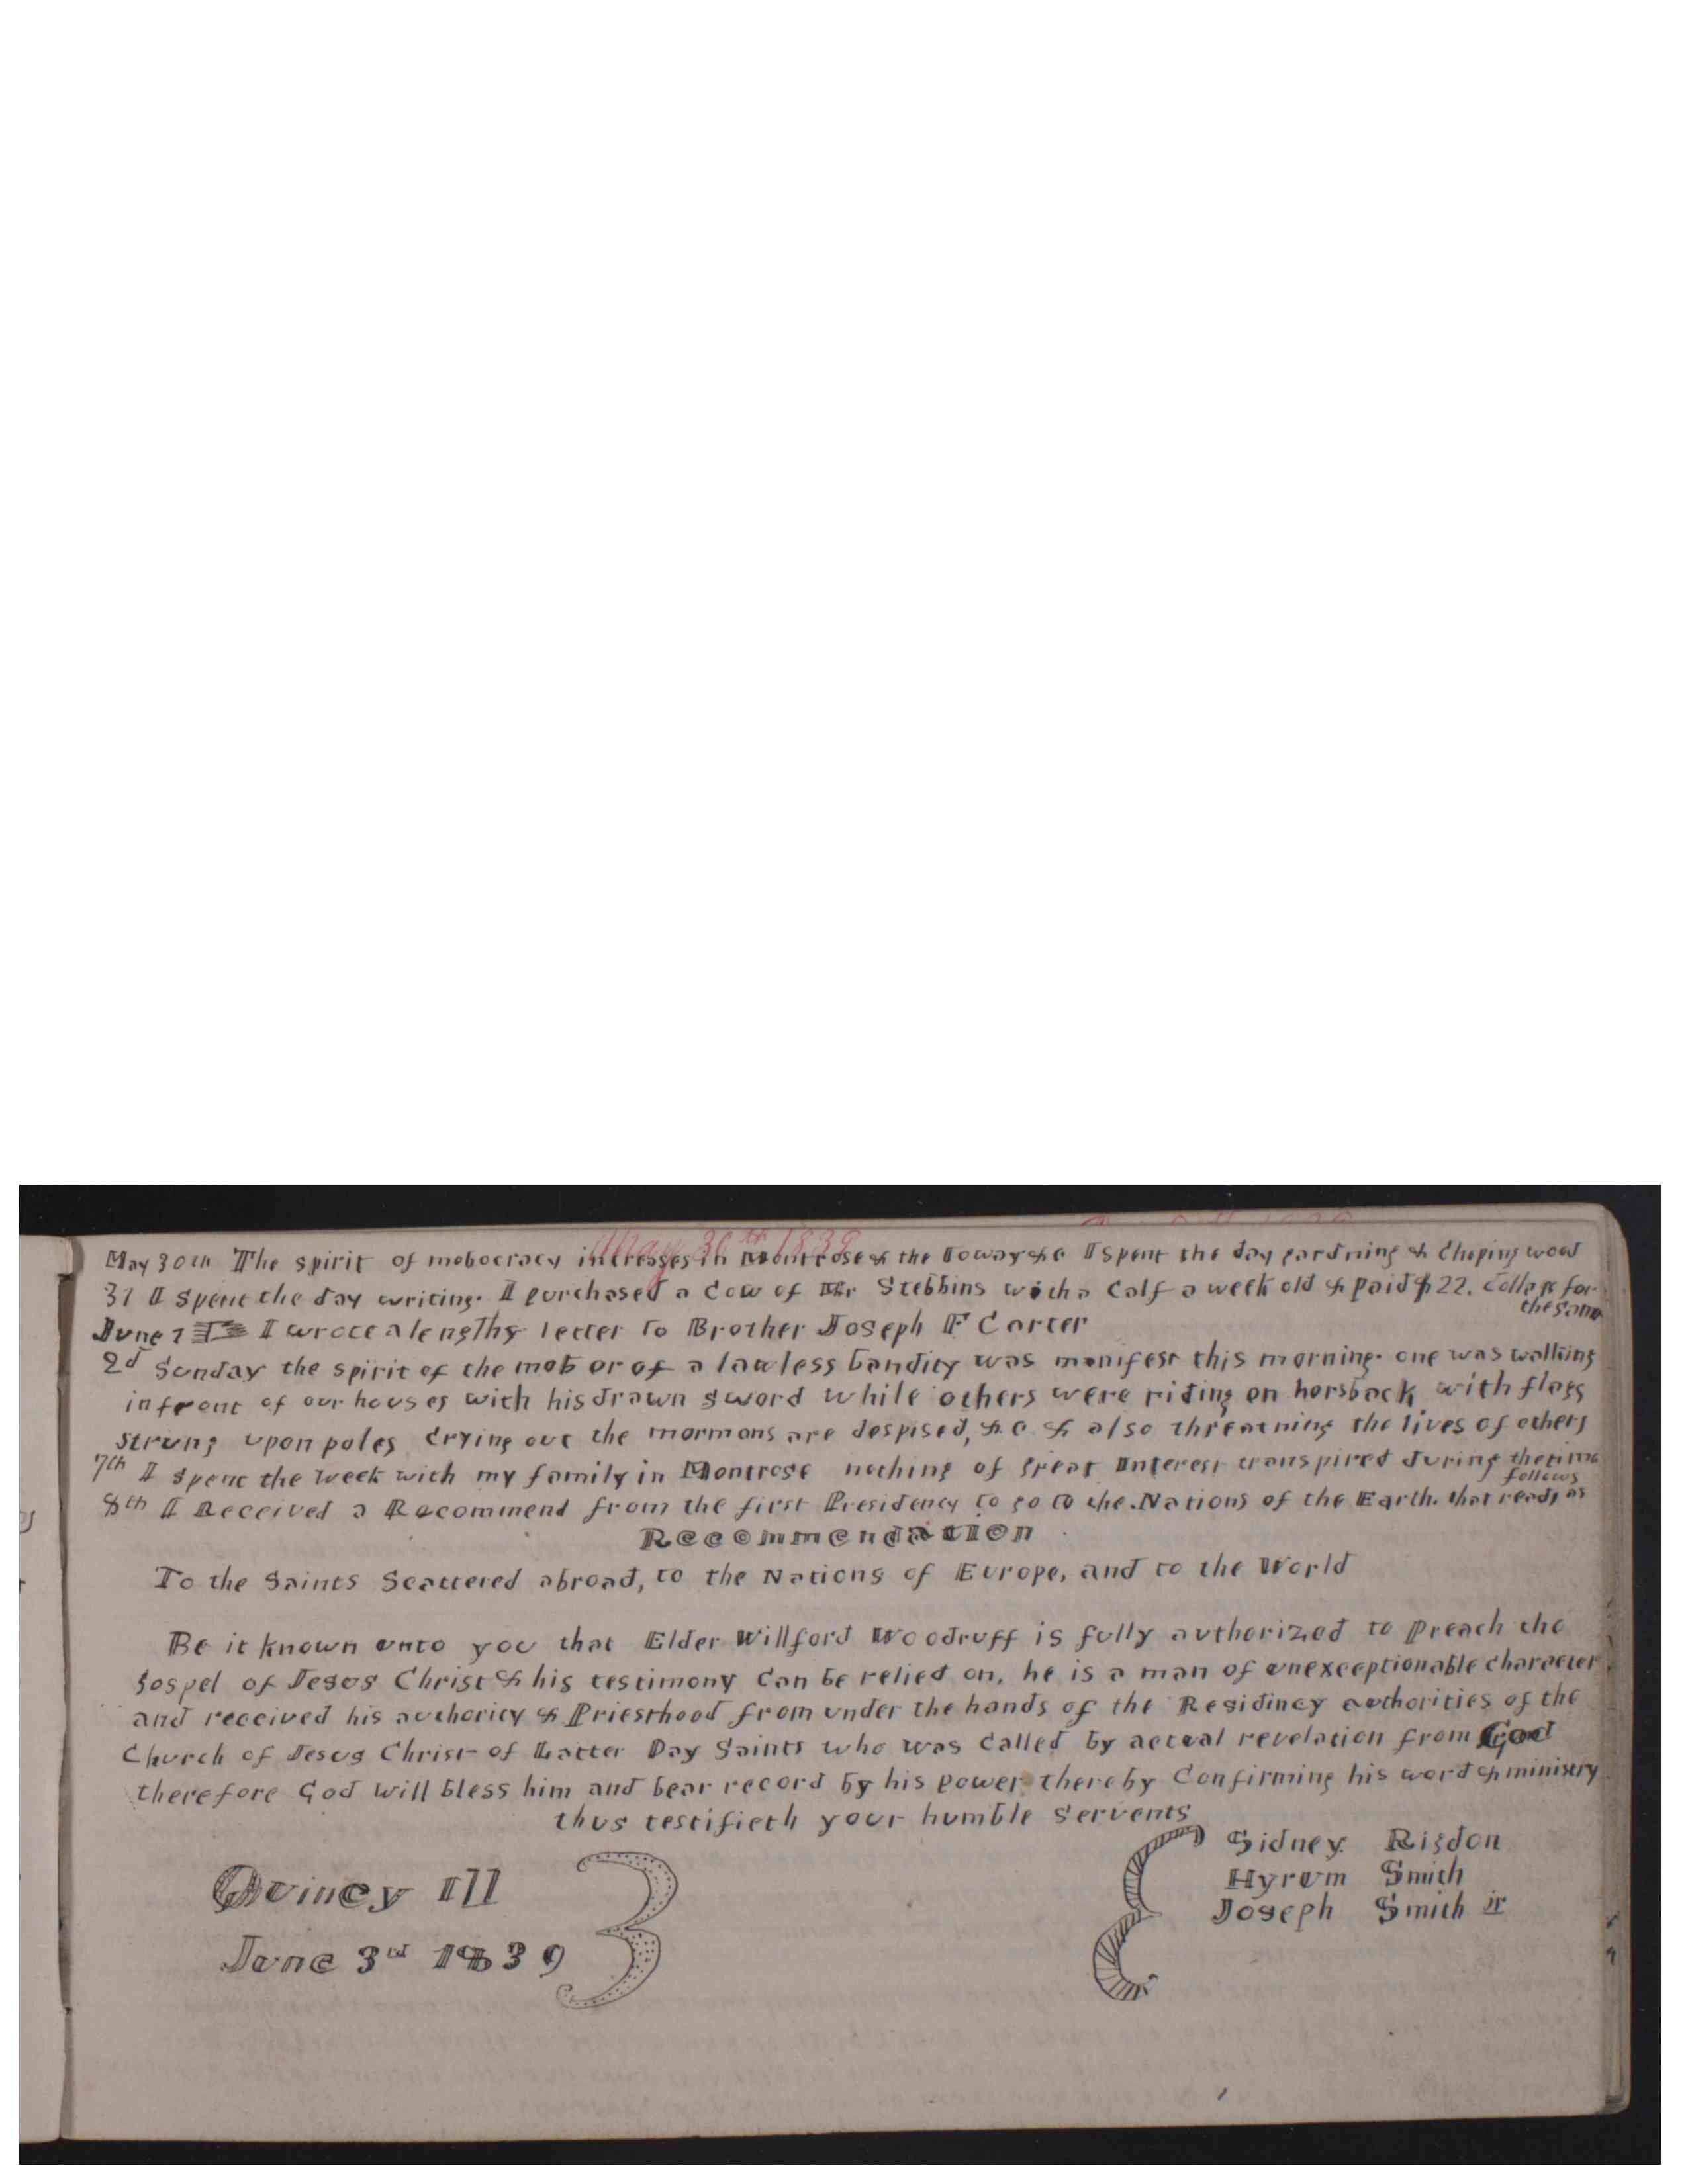 May 30th 1839
May 30th The spirit of mobocracy increases in Montrose & the Ioway &c I spent the day gardning & Choping wood
31 I spent the day writing. I purchased a Cow of Mr Stebbins with a Calf a week old & paid $22. for
the same
June 1 I wrote a lengthy letter to Brother Joseph F Carter
2d Sunday the spirit of the mob or of a lawless bandity was manifest this morning. one was walking
in front of our houses with his drawn sword while others were riding on horsback with flags
strung upon poles crying out the mormons are despised, &c & also threatning the lives of others
7th I spent the week with my family in Montrose nothing of great Interest transpired during the time
follows
8th I Received a Recommend from the first Presidency to go to the Nations of the Earth. that reads as
Recommendation
To the Saints Scattered abroad, to the Nations of Europe, and to the World
Be it known unto you that Elder Willford Woodruff is fully authorized to preach the
gospel of Jesus Christ & his testimony can be relied on, he is a man of unexceptionable character
and received his authority & Priesthood from under the hands of the Residincy authorities of the
Church of Jesus Christ of Latter Day Saints who was called by actual revelation from God
therefore God will bless him and bear record by his power thereby Confirming his word & ministry
thus testifieth your humble servents
Sidney Rigdon
Quincy Ill
Hyrum Smith
Joseph Smith jr
June 3rd 1839